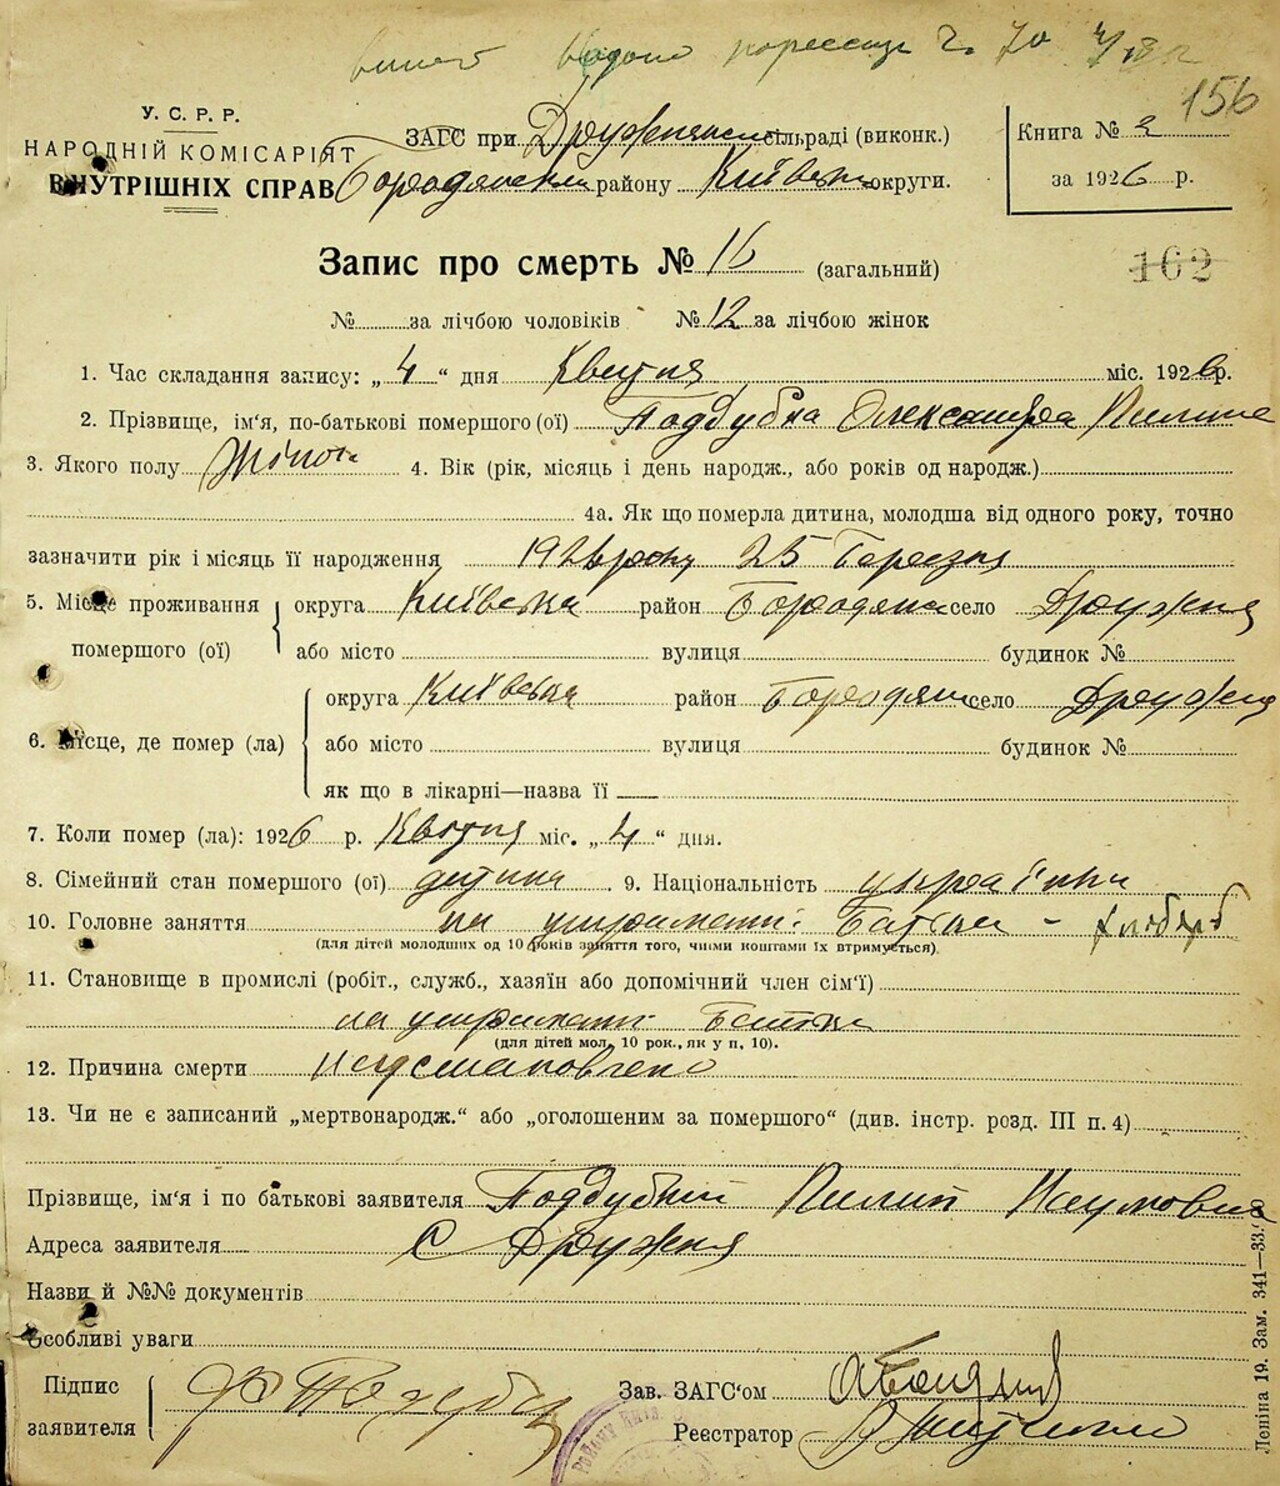 156
У. С. Р. Р.
НАРОДНІЙ КОМІСАРІЯТ
ВНУТРІШНІХ СПРАВ
ЗАГС при Дружнянськ сільраді (виконк.)
Бородянськ району Київськ округи.
Книга № 2
за 1926 р.
Запис про смерть № 16 (загальний)
162
№ за лічбою чоловіків № 12 за лічбою жінок
1. Час складання запису: „ 4 “ дня Квітня міс. 1926 р.
2. Прізвище, ім‘я, по-батькові помершого (ої) Поддубна Олександра Пилип
3. Якого полу Жіноч 4. Вік (рік, місяць і день народж., або років од народж.)
4а. Як що померла дитина, молодша від одного року, точно
зазначити рік і місяць її народження 1926 року 25 Березня
5. Місце проживання помершого (ої) округа Київська район Бородянс село Дружня
або місто вулиця будинок №
6. Місце, де помер (ла) округа Київська район Бородянс село Дружня
або місто вулиця будинок №
як що в лікарні—назва її
7. Коли помер (ла): 1926 р. Квітня міс. „ 4 “ дня.
8. Сімейний стан помершого (ої) дитина 9. Національність українка
10. Головне заняття на утриманні Батька - хлібороб
(для дітей молодших од 10 років заняття того, чиїми коштами їх втримується).
11. Становище в промислі (робіт., служб., хазяїн або допомічний член сім‘ї)
на утриманні Батька
(для дітей мол. 10 рок., як у п. 10).
12. Причина смерти
13. Чи не є записаний „мертвонародж.“ або „оголошеним за помершого“ (див. інстр. розд. III п. 4)
Прізвище, ім‘я і по батькові заявителя Поддубний Пилип Наумович
Адреса заявителя С Дружня
Назви й №№ документів
Особливі уваги
Підпис заявителя
Зав. ЗАГС‘ом
Реєстратор
Леніна 19. Зам. 341—33.